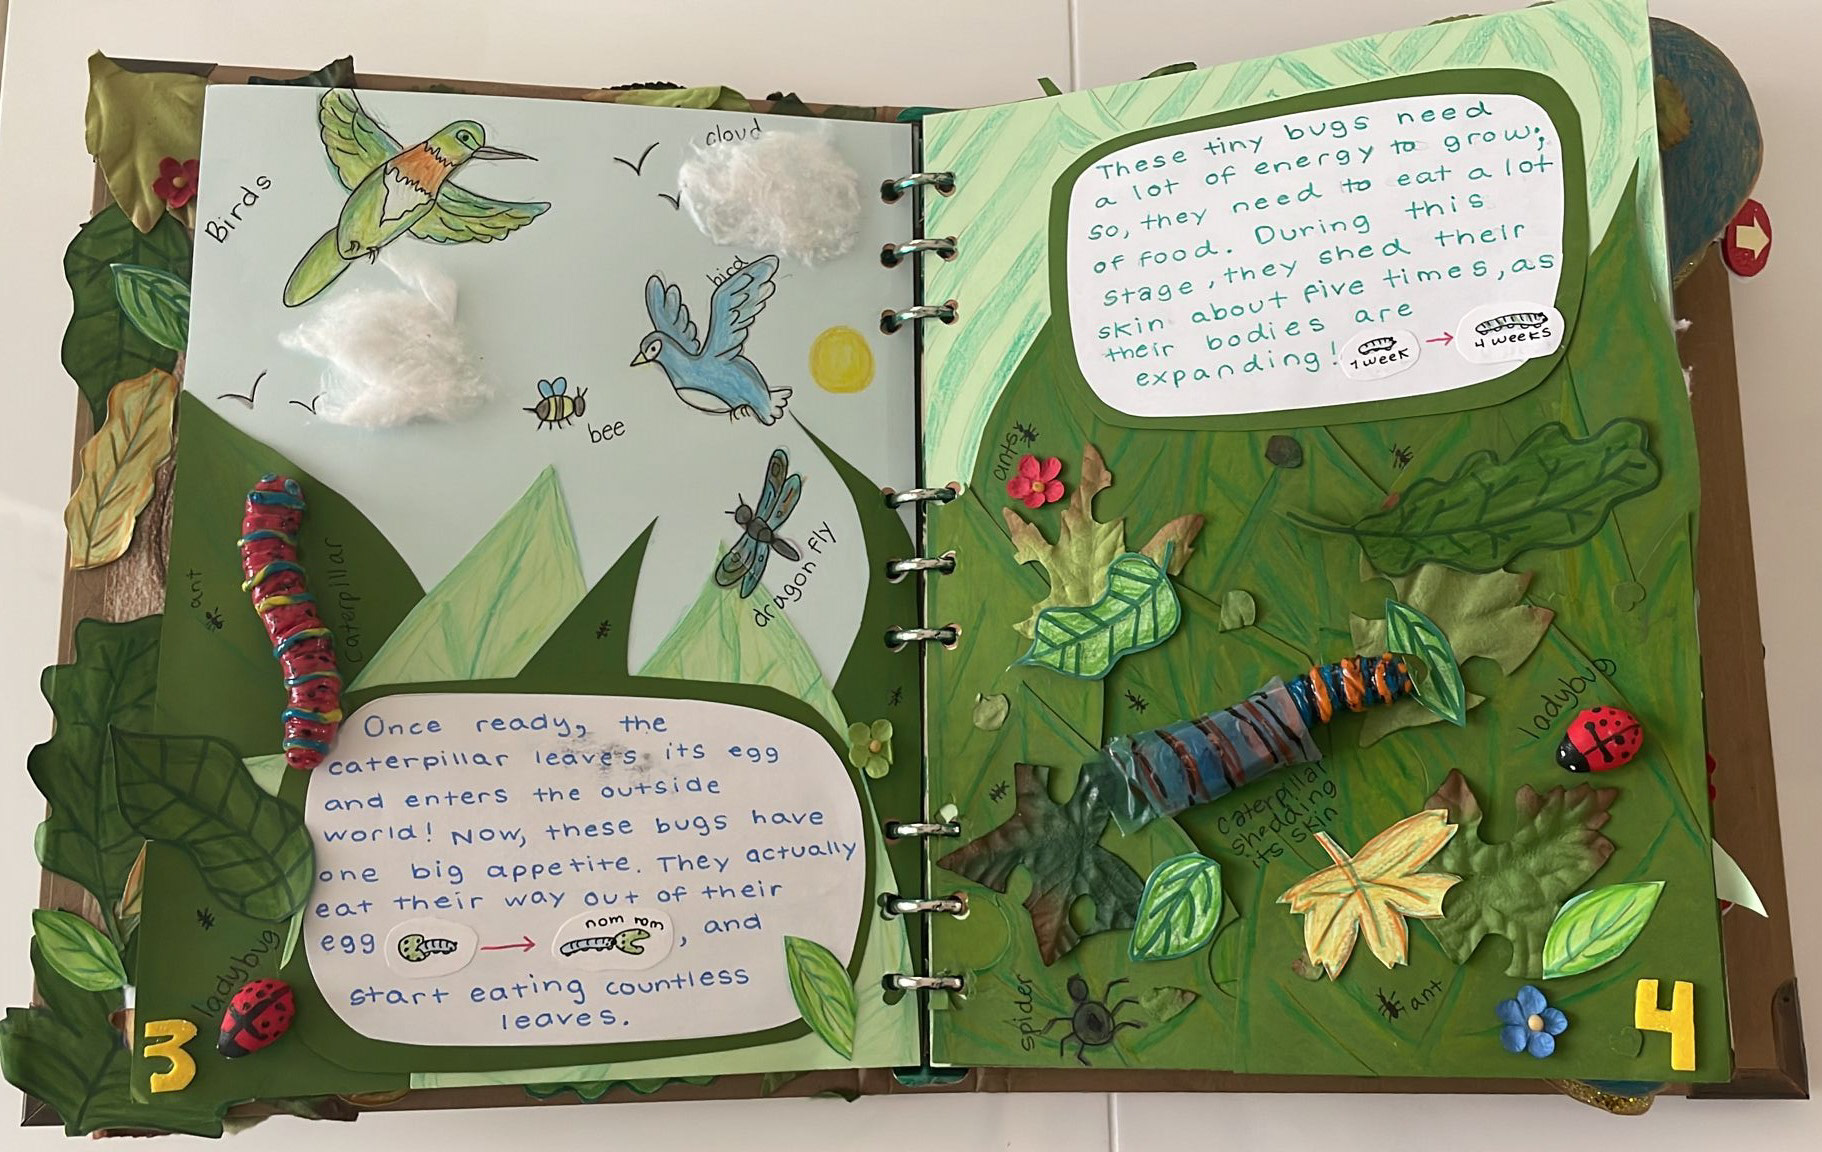 Birds
cloud
bird
bee
dragon fly
ant
caterpillar
Once ready, the
caterpillar leaves its egg
and enters the outside
world! Now, these bugs have
one big appetite. They actually
eat their way out of their
egg → nom nom, and
start eating countless
leaves.
ladybug
3
These tiny bugs need
a lot of energy to grow;
so, they need to eat a lot
of food. During this
stage, they shed their
skin about five times, as
their bodies are
expanding! 1 week → 4 weeks
ants
ladybug
caterpillar
shedding
its skin
spider
ant
4